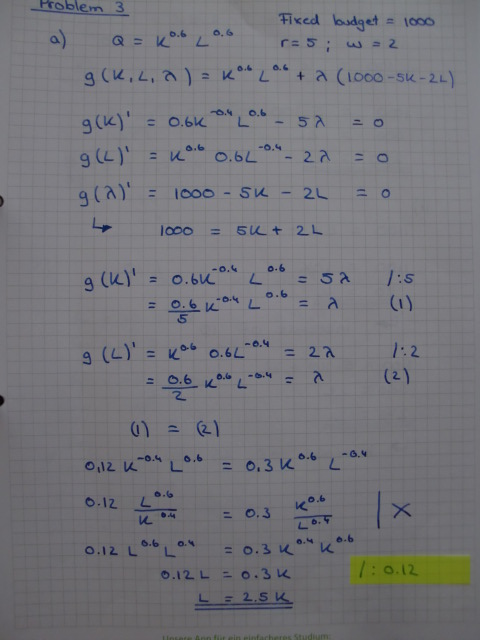 Problem 3
Fixed budget = 1000
a) Q = K^0.6 L^0.6 r = 5 ; w = 2
g(K, L, λ) = K^0.6 L^0.6 + λ (1000 - 5K - 2L)
g(K)' = 0.6K^-0.4 L^0.6 - 5λ = 0
g(L)' = K^0.6 0.6L^-0.4 - 2λ = 0
g(λ)' = 1000 - 5K - 2L = 0
↳ 1000 = 5K + 2L
g(K)' = 0.6K^-0.4 L^0.6 = 5λ /:5
= 0.6/5 K^-0.4 L^0.6 = λ (1)
g(L)' = K^0.6 0.6L^-0.4 = 2λ /:2
= 0.6/2 K^0.6 L^-0.4 = λ (2)
(1) = (2)
0,12 K^-0.4 L^0.6 = 0,3 K^0.6 L^-0.4
0.12 L^0.6/K^0.4 = 0.3 K^0.6/L^0.4 | X
0.12 L^0.6 L^0.4 = 0.3 K^0.4 K^0.6
0.12 L = 0.3 K /: 0.12
L = 2.5 K
Unsere App für ein einfacheres Studium: